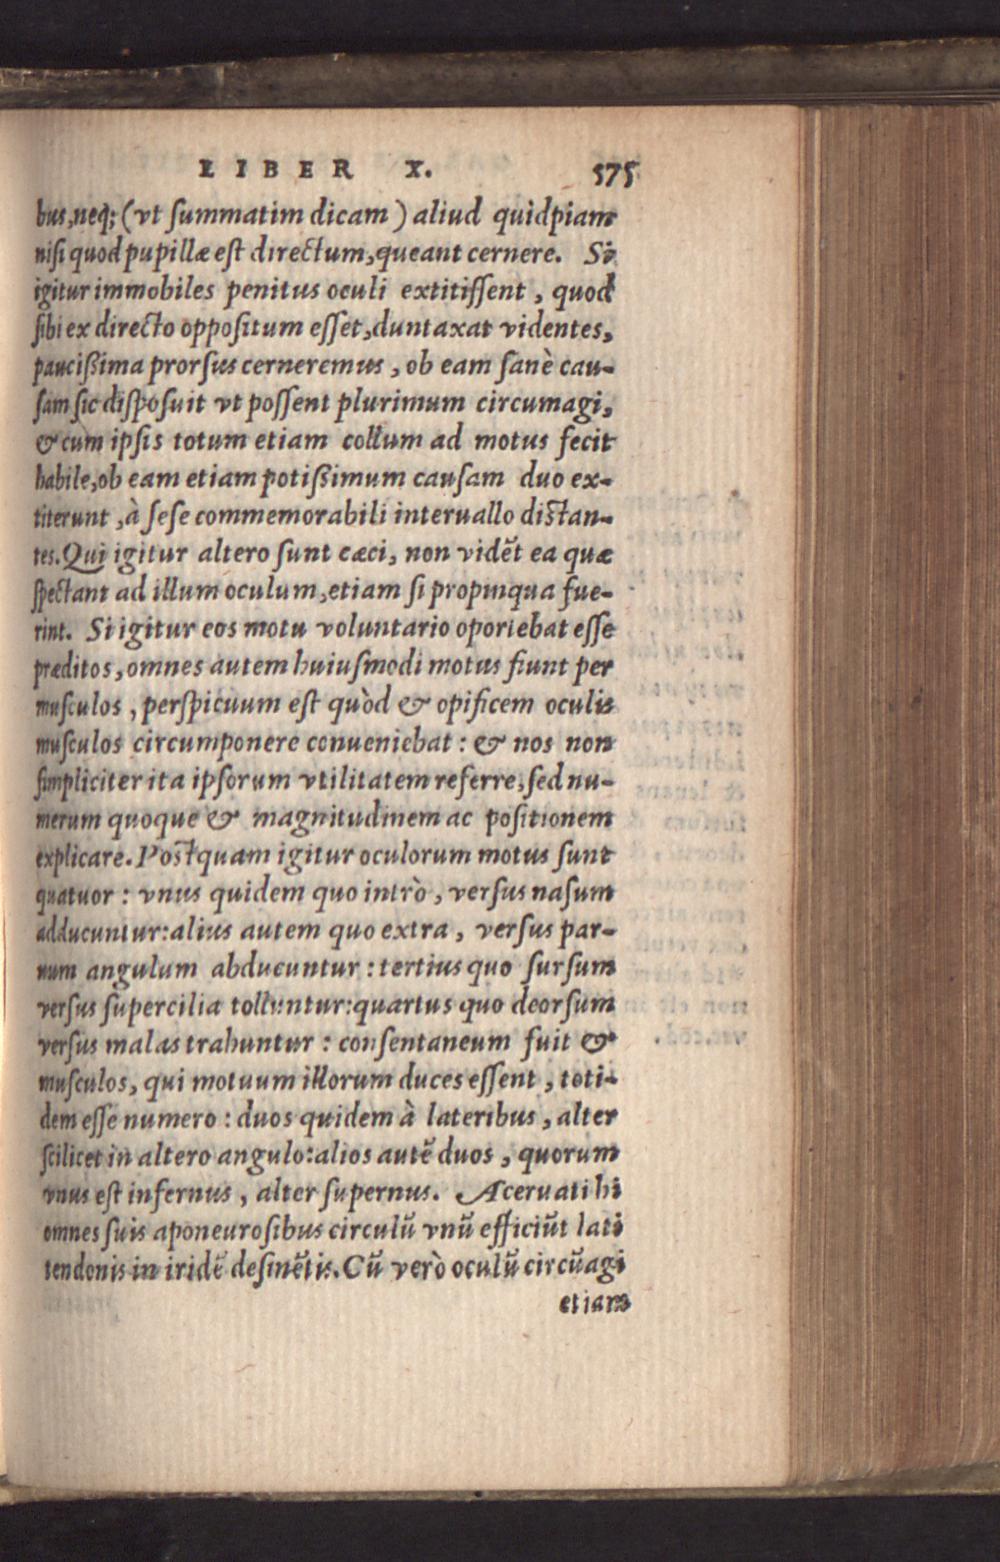 LIBER X. 575
bus, neq; (vt summatim dicam) aliud quidpiam
nisi quod pupillæ est directum, queant cernere. Si
igitur immobiles penitus oculi extitissent, quod
sibi ex directo oppositum esset, duntaxat videntes,
paucißima prorsus cerneremus, ob eam sanè cau-
sam sic disposuit vt possent plurimum circumagi,
& cum ipsis totum etiam collum ad motus fecit
habile, ob eam etiam potißimum causam duo ex-
titerunt, à sese commemorabili interuallo distan-
tes. Qui igitur altero sunt cæci, non vidēt ea quæ
spectant ad illum oculum, etiam si propinqua fue-
rint. Si igitur eos motu voluntario oportebat esse
præditos, omnes autem huiusmodi motus fiunt per
musculos, perspicuum est quòd & opificem oculis
musculos circumponere conueniebat: & nos non
simpliciter ita ipsorum vtilitatem referre, sed nu-
merum quoque & magnitudinem ac positionem
explicare. Postquam igitur oculorum motus sunt
quatuor: vnus quidem quo intrò, versus nasum
adducuntur: alius autem quo extra, versus par-
uum angulum abducuntur: tertius quo sursum
versus supercilia tolluntur: quartus quo deorsum
versus malas trahuntur: consentaneum fuit &
musculos, qui motuum illorum duces essent, toti-
dem esse numero: duos quidem à lateribus, alter
scilicet in altero angulo: alios autē duos, quorum
vnus est infernus, alter supernus. Aceruati hi
omnes suis aponeurosibus circulū vnū efficiūt lati
tendonis in iridē desinētis. Cū verò oculū circūagi
etiam